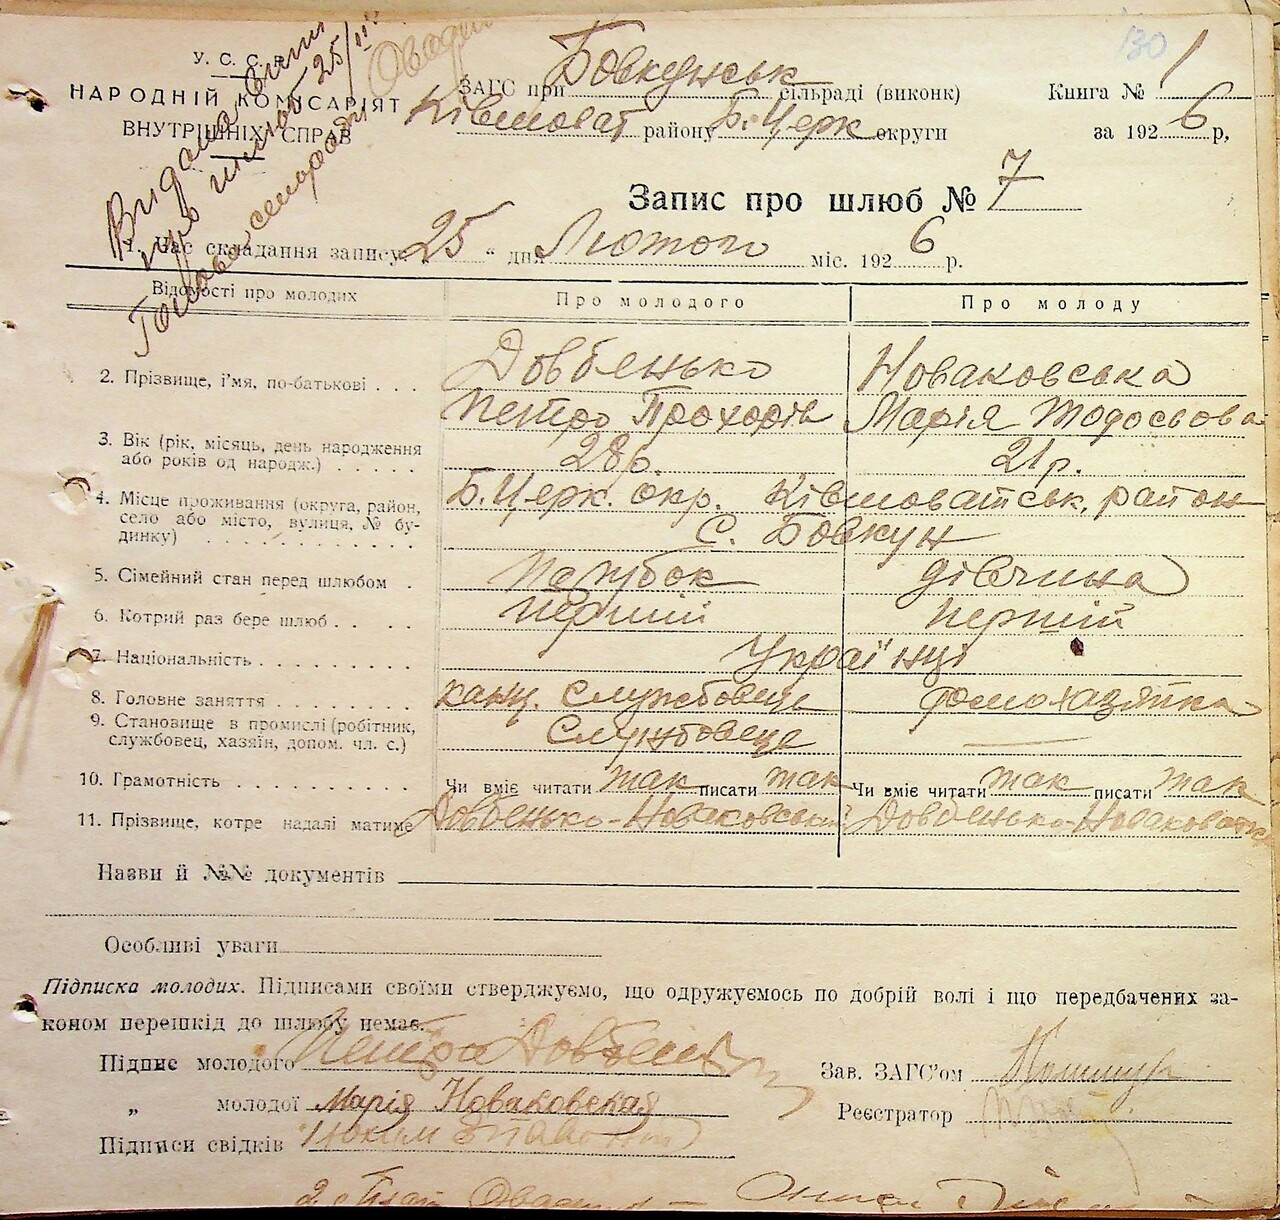 130
У. С. С. Р.
НАРОДНІЙ КОМІСАРІЯТ
ВНУТРІШНІХ СПРАВ
Видана
про шлюб 25/II
Голова сельради
ЗАГС при Бовкунськ сільраді (виконк)
Ківшоват району Б. Церк округи
Книга № 1
за 1926 р,
Запис про шлюб № 7
1. Час складання запису „25“ дня Лютого міс. 1926 р.
Відомості про молодих
Про молодого
Про молоду
2. Прізвище, і'мя, по-батькові . . .
Довбенько
Петро Прохорів
Новаковська
Марія Тодосьова
3. Вік (рік, місяць, день народження
або років од народж.) . . . . .
28 р.
21 р.
4. Місце проживання (округа, район,
село або місто, вулиця, № бу-
динку) . . . . . . . . . . . .
Б. Церк. окр. Ківшоватськ. район
С. Бовкун
5. Сімейний стан перед шлюбом .
парубок
дівчина
6. Котрий раз бере шлюб . . . .
перший
перший
7. Національність . . . . . . . . .
Українці
8. Головне заняття . . . . . . . .
канц. службовець
домохазяйка
9. Становище в промислі (робітник,
службовец, хазяїн, допом. чл. с.)
Службовець
—
10. Грамотність . . . . . . . . . .
Чи вміє читати так писати так
Чи вміє читати так писати так
11. Прізвище, котре надалі матиме
Довбенько-Новаковський
Довбенько-Новаковська
Назви й №№ документів
Особливі уваги
Підписка молодих. Підписами своїми стверджуємо, що одружуємось по добрій волі і що передбачених за-
коном перешкід до шлюбу немає.
Підпис молодого Петро Довбенько
„ молодої Марія Новаковская
Підписи свідків
Зав. ЗАГС'ом
Реєстратор